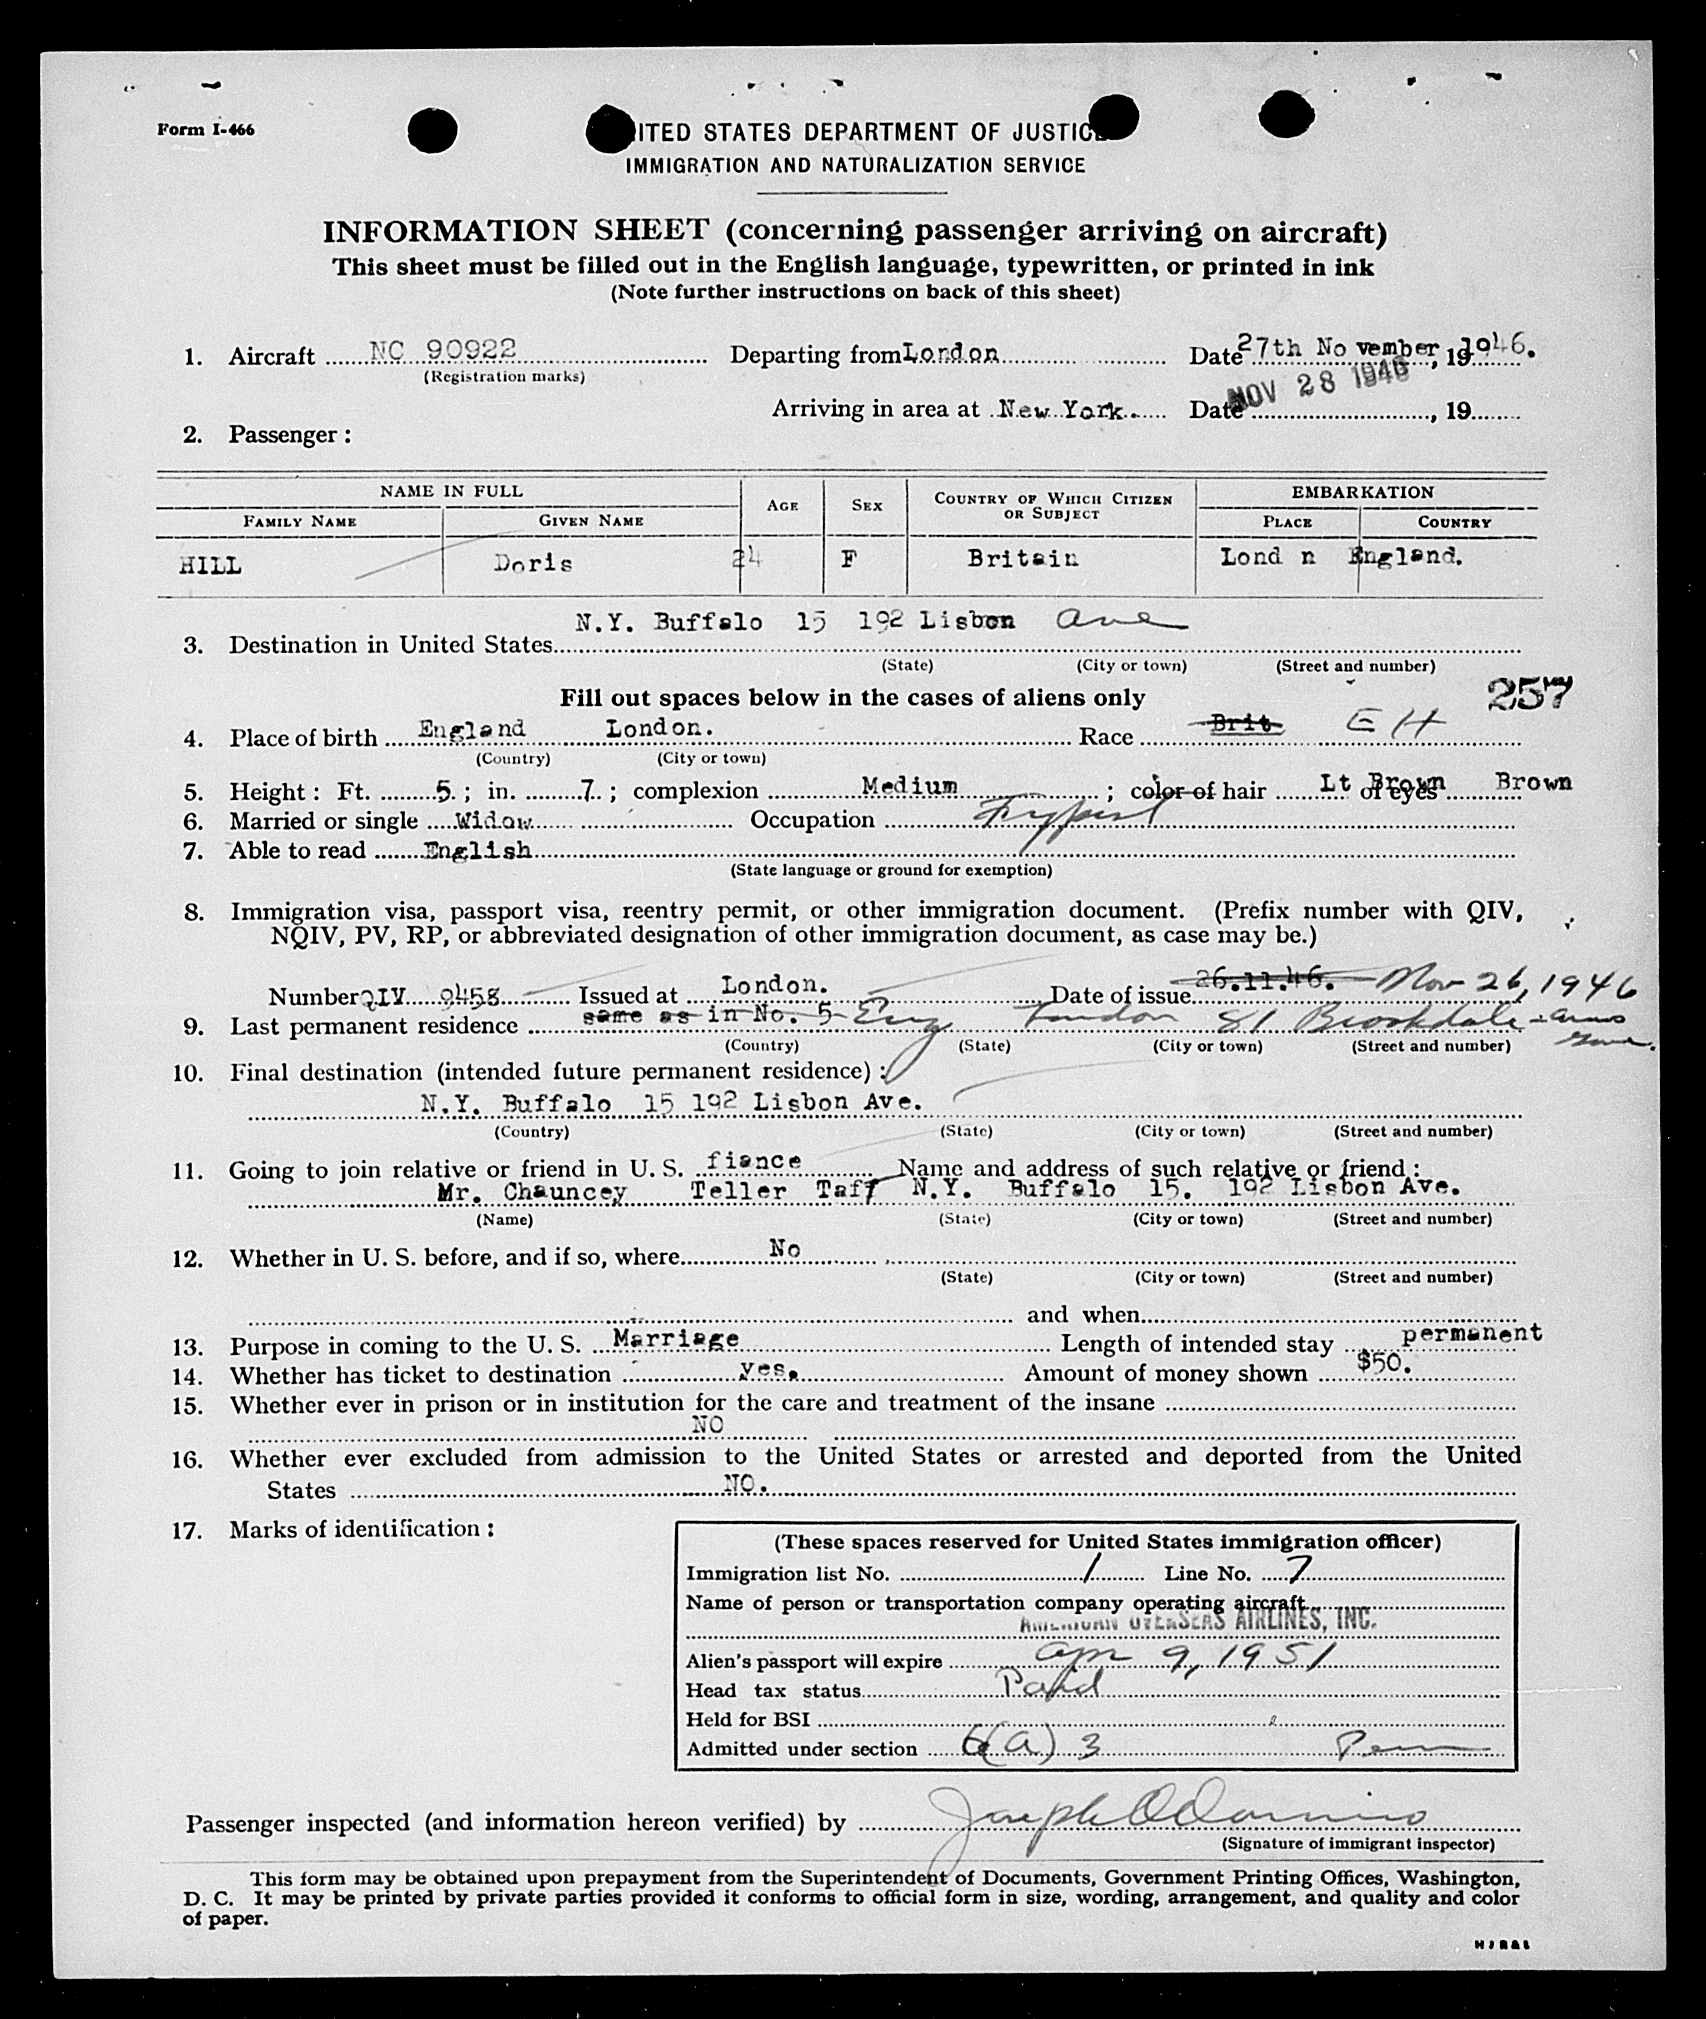 Form I-466
ITED STATES DEPARTMENT OF JUSTIC
IMMIGRATION AND NATURALIZATION SERVICE
INFORMATION SHEET (concerning passenger arriving on aircraft)
This sheet must be filled out in the English language, typewritten, or printed in ink
(Note further instructions on back of this sheet)
1. Aircraft NC 90922 Departing from London Date 27th No vember, 19 1946.
(Registration marks)
NOV 28 1946
Arriving in area at New York. Date , 19
2. Passenger:
NAME IN FULL AGE SEX COUNTRY OF WHICH CITIZEN OR SUBJECT EMBARKATION
FAMILY NAME GIVEN NAME PLACE COUNTRY
HILL Doris 24 F Britain Lond n England.
N.Y. Buffalo 15 192 Lisbon Ave
3. Destination in United States
(State) (City or town) (Street and number)
Fill out spaces below in the cases of aliens only 257
4. Place of birth England London. Race Brit EH
(Country) (City or town)
5. Height: Ft. 5; in. 7; complexion Medium; color of hair Lt Brown of eyes Brown
6. Married or single Widow Occupation
7. Able to read English
(State language or ground for exemption)
8. Immigration visa, passport visa, reentry permit, or other immigration document. (Prefix number with QIV,
NQIV, PV, RP, or abbreviated designation of other immigration document, as case may be.)
Number QIV 9458 Issued at London. Date of issue 26.11.46. Nov 26, 1946
9. Last permanent residence same as in No. 5 Eng London 81 Brookdale
(Country) (State) (City or town) (Street and number)
10. Final destination (intended future permanent residence):
N.Y. Buffalo 15 192 Lisbon Ave.
(Country) (State) (City or town) (Street and number)
11. Going to join relative or friend in U. S. fiance Name and address of such relative or friend:
Mr. Chauncey Teller Taff N.Y. Buffalo 15. 192 Lisbon Ave.
(Name) (State) (City or town) (Street and number)
12. Whether in U. S. before, and if so, where No
(State) (City or town) (Street and number)
and when
13. Purpose in coming to the U. S. Marriage Length of intended stay permanent
14. Whether has ticket to destination yes. Amount of money shown $50.
15. Whether ever in prison or in institution for the care and treatment of the insane
NO
16. Whether ever excluded from admission to the United States or arrested and deported from the United
States NO.
17. Marks of identification:
(These spaces reserved for United States immigration officer)
Immigration list No. 1 Line No. 7
Name of person or transportation company operating aircraft
AMERICAN OVERSEAS AIRLINES, INC.
Alien's passport will expire Apr 9, 1951
Head tax status Paid
Held for BSI
Admitted under section 6(a) 3 Perm
Passenger inspected (and information hereon verified) by Joseph
(Signature of immigrant inspector)
This form may be obtained upon prepayment from the Superintendent of Documents, Government Printing Offices, Washington,
D. C. It may be printed by private parties provided it conforms to official form in size, wording, arrangement, and quality and color
of paper.